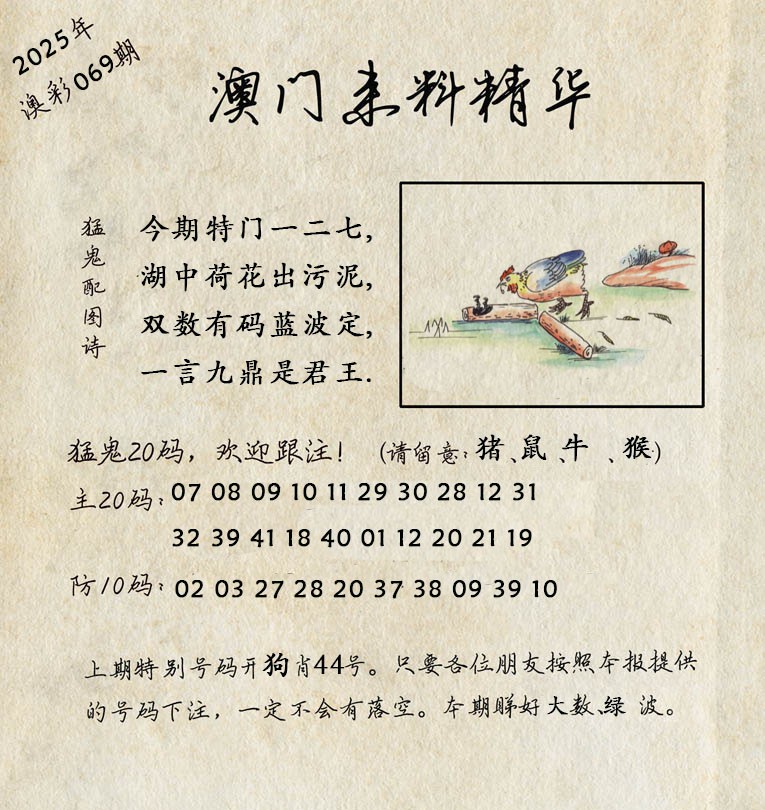 2025年
澳彩069期
澳门来料精华
猛鬼配图诗
今期特门一二七,
湖中荷花出污泥,
双数有码蓝波定,
一言九鼎是君王.
猛鬼20码，欢迎跟注！（请留意：猪、鼠、牛、猴）
主20码：07 08 09 10 11 29 30 28 12 31
32 39 41 18 40 01 12 20 21 19
防10码：02 03 27 28 20 37 38 09 39 10
上期特别号码开狗肖44号。只要各位朋友按照本报提供
的号码下注，一定不会有落空。本期睇好大数、绿 波。